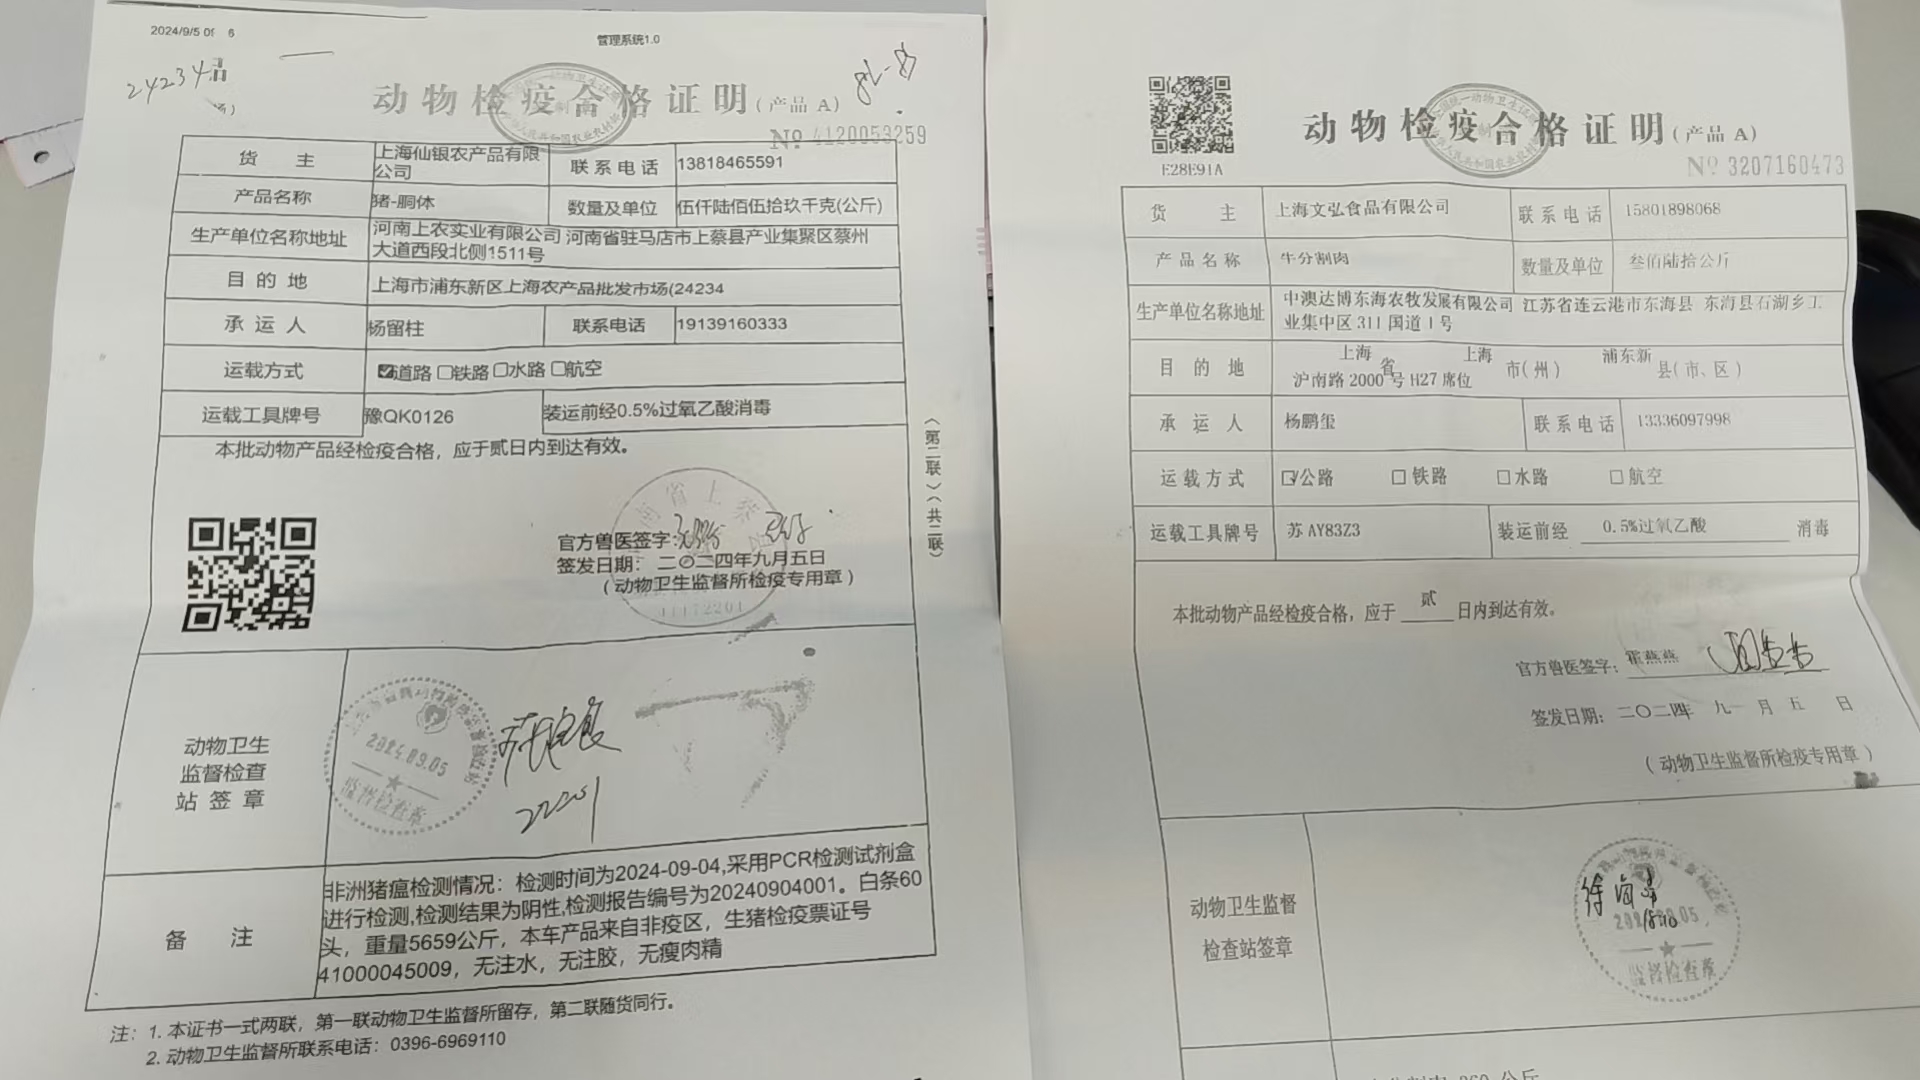 2024/9/5 0
6
管理系统1.0
24234
动物检疫合格证明(产品 A)
№ 4120053259
货 主
上海仙银农产品有限公司
联系电话
13818465591
产品名称
猪-胴体
数量及单位
伍仟陆佰伍拾玖千克(公斤)
生产单位名称地址
河南上农实业有限公司 河南省驻马店市上蔡县产业集聚区蔡州
大道西段北侧1511号
目的地
上海市浦东新区上海农产品批发市场(24234
承运人
杨留柱
联系电话
19139160333
运载方式
☑道路 ☐铁路 ☐水路 ☐航空
运载工具牌号
豫QK0126
装运前经0.5%过氧乙酸消毒
本批动物产品经检疫合格，应于贰日内到达有效。
官方兽医签字:
签发日期： 二〇二四年九月五日
（动物卫生监督所检疫专用章）
11172201
（第二联）（共二联）
动物卫生
监督检查
站签章
2024.09.05
监督检查章
22201
备 注
非洲猪瘟检测情况：检测时间为2024-09-04,采用PCR检测试剂盒
进行检测,检测结果为阴性,检测报告编号为20240904001。白条60
头，重量5659公斤，本车产品来自非疫区，生猪检疫票证号
41000045009，无注水，无注胶，无瘦肉精
注：1. 本证书一式两联，第一联动物卫生监督所留存，第二联随货同行。
2. 动物卫生监督所联系电话：0396-6969110
E28E91A
动物检疫合格证明(产品 A)
№ 3207160473
货 主
上海文弘食品有限公司
联系电话
15801898068
产品名称
牛分割肉
数量及单位
叁佰陆拾公斤
生产单位名称地址
中澳达博东海农牧发展有限公司 江苏省连云港市东海县 东海县石湖乡工
业集中区 311 国道 1 号
目的地
上海 省 上海 市(州) 浦东新 县(市、区)
沪南路 2000 号 H27 席位
承运人
杨鹏玺
联系电话
13336097998
运载方式
☑公路 ☐铁路 ☐水路 ☐航空
运载工具牌号
苏 AY83Z3
装运前经 0.5%过氧乙酸 消毒
本批动物产品经检疫合格，应于 贰 日内到达有效。
官方兽医签字: 霍燕燕
签发日期: 二〇二四年 九 月 五 日
（动物卫生监督所检疫专用章）
动物卫生监督
检查站签章
监督检查章